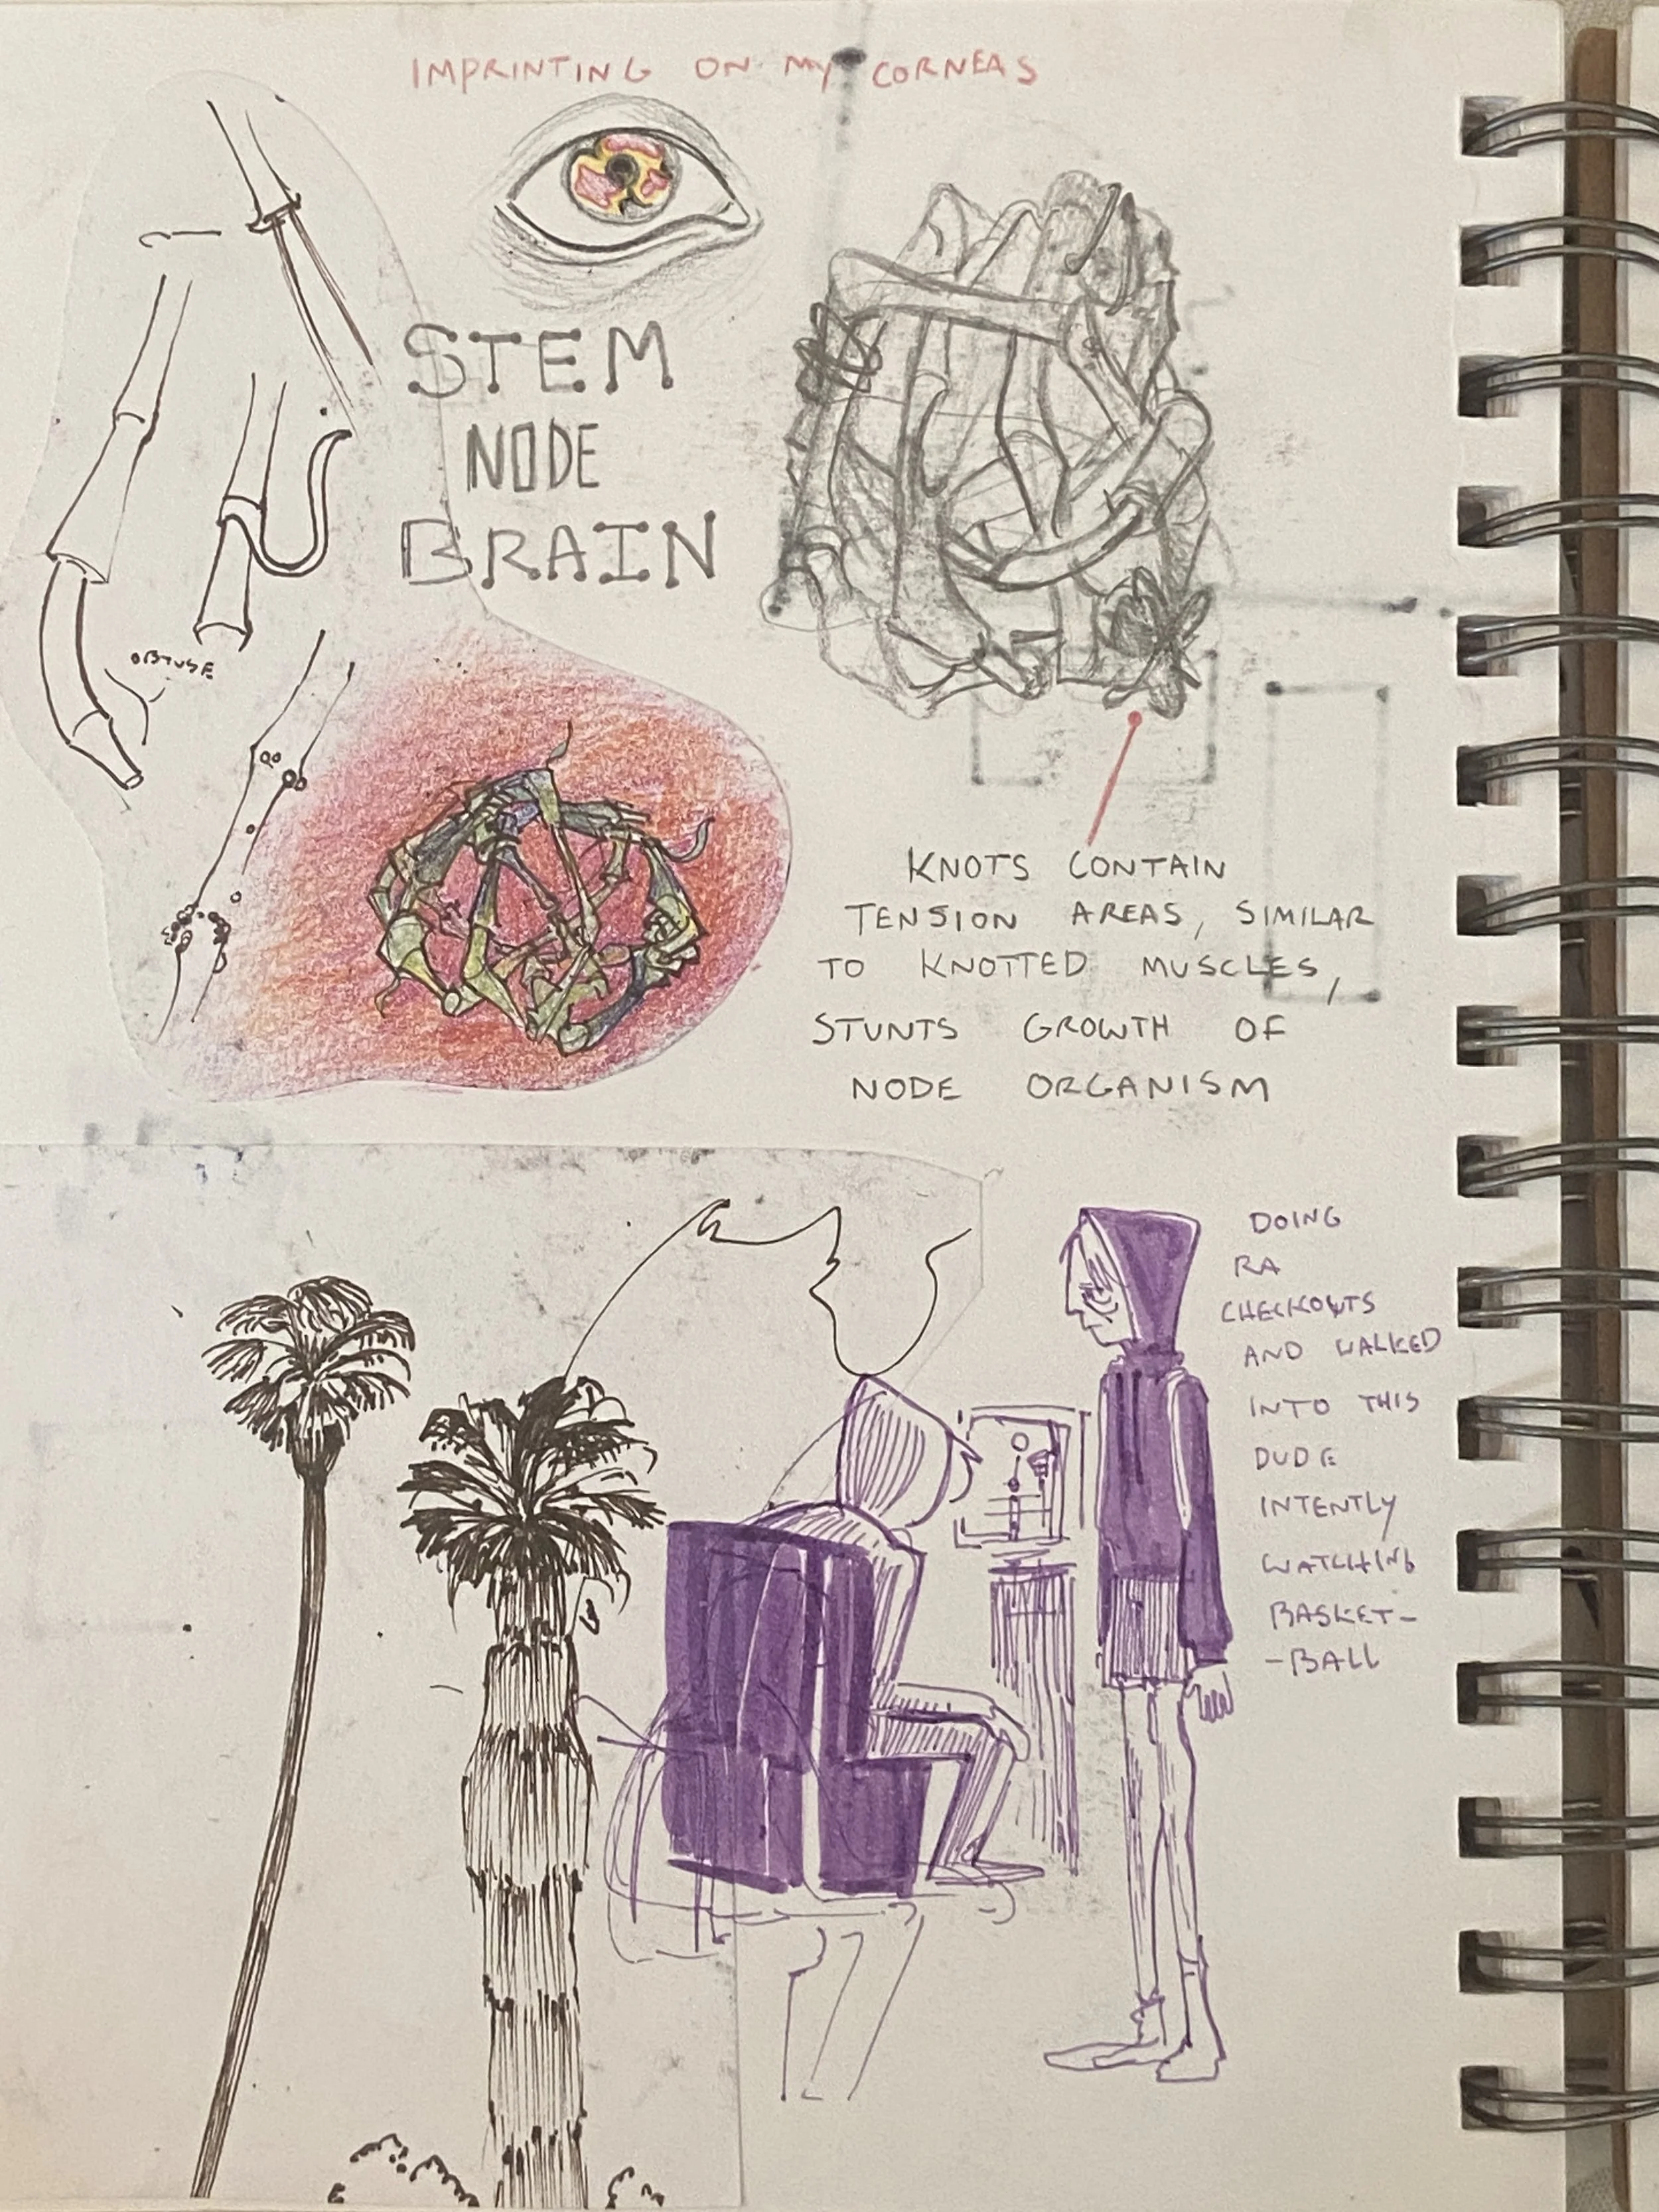 IMPRINTING ON MY CORNEAS
STEM
NODE
BRAIN
OBTUSE
KNOTS CONTAIN
TENSION AREAS, SIMILAR
TO KNOTTED MUSCLES,
STUNTS GROWTH OF
NODE ORGANISM
DOING
RA
CHECKOUTS
AND WALKED
INTO THIS
DUDE
INTENTLY
WATCHING
BASKET-
-BALL